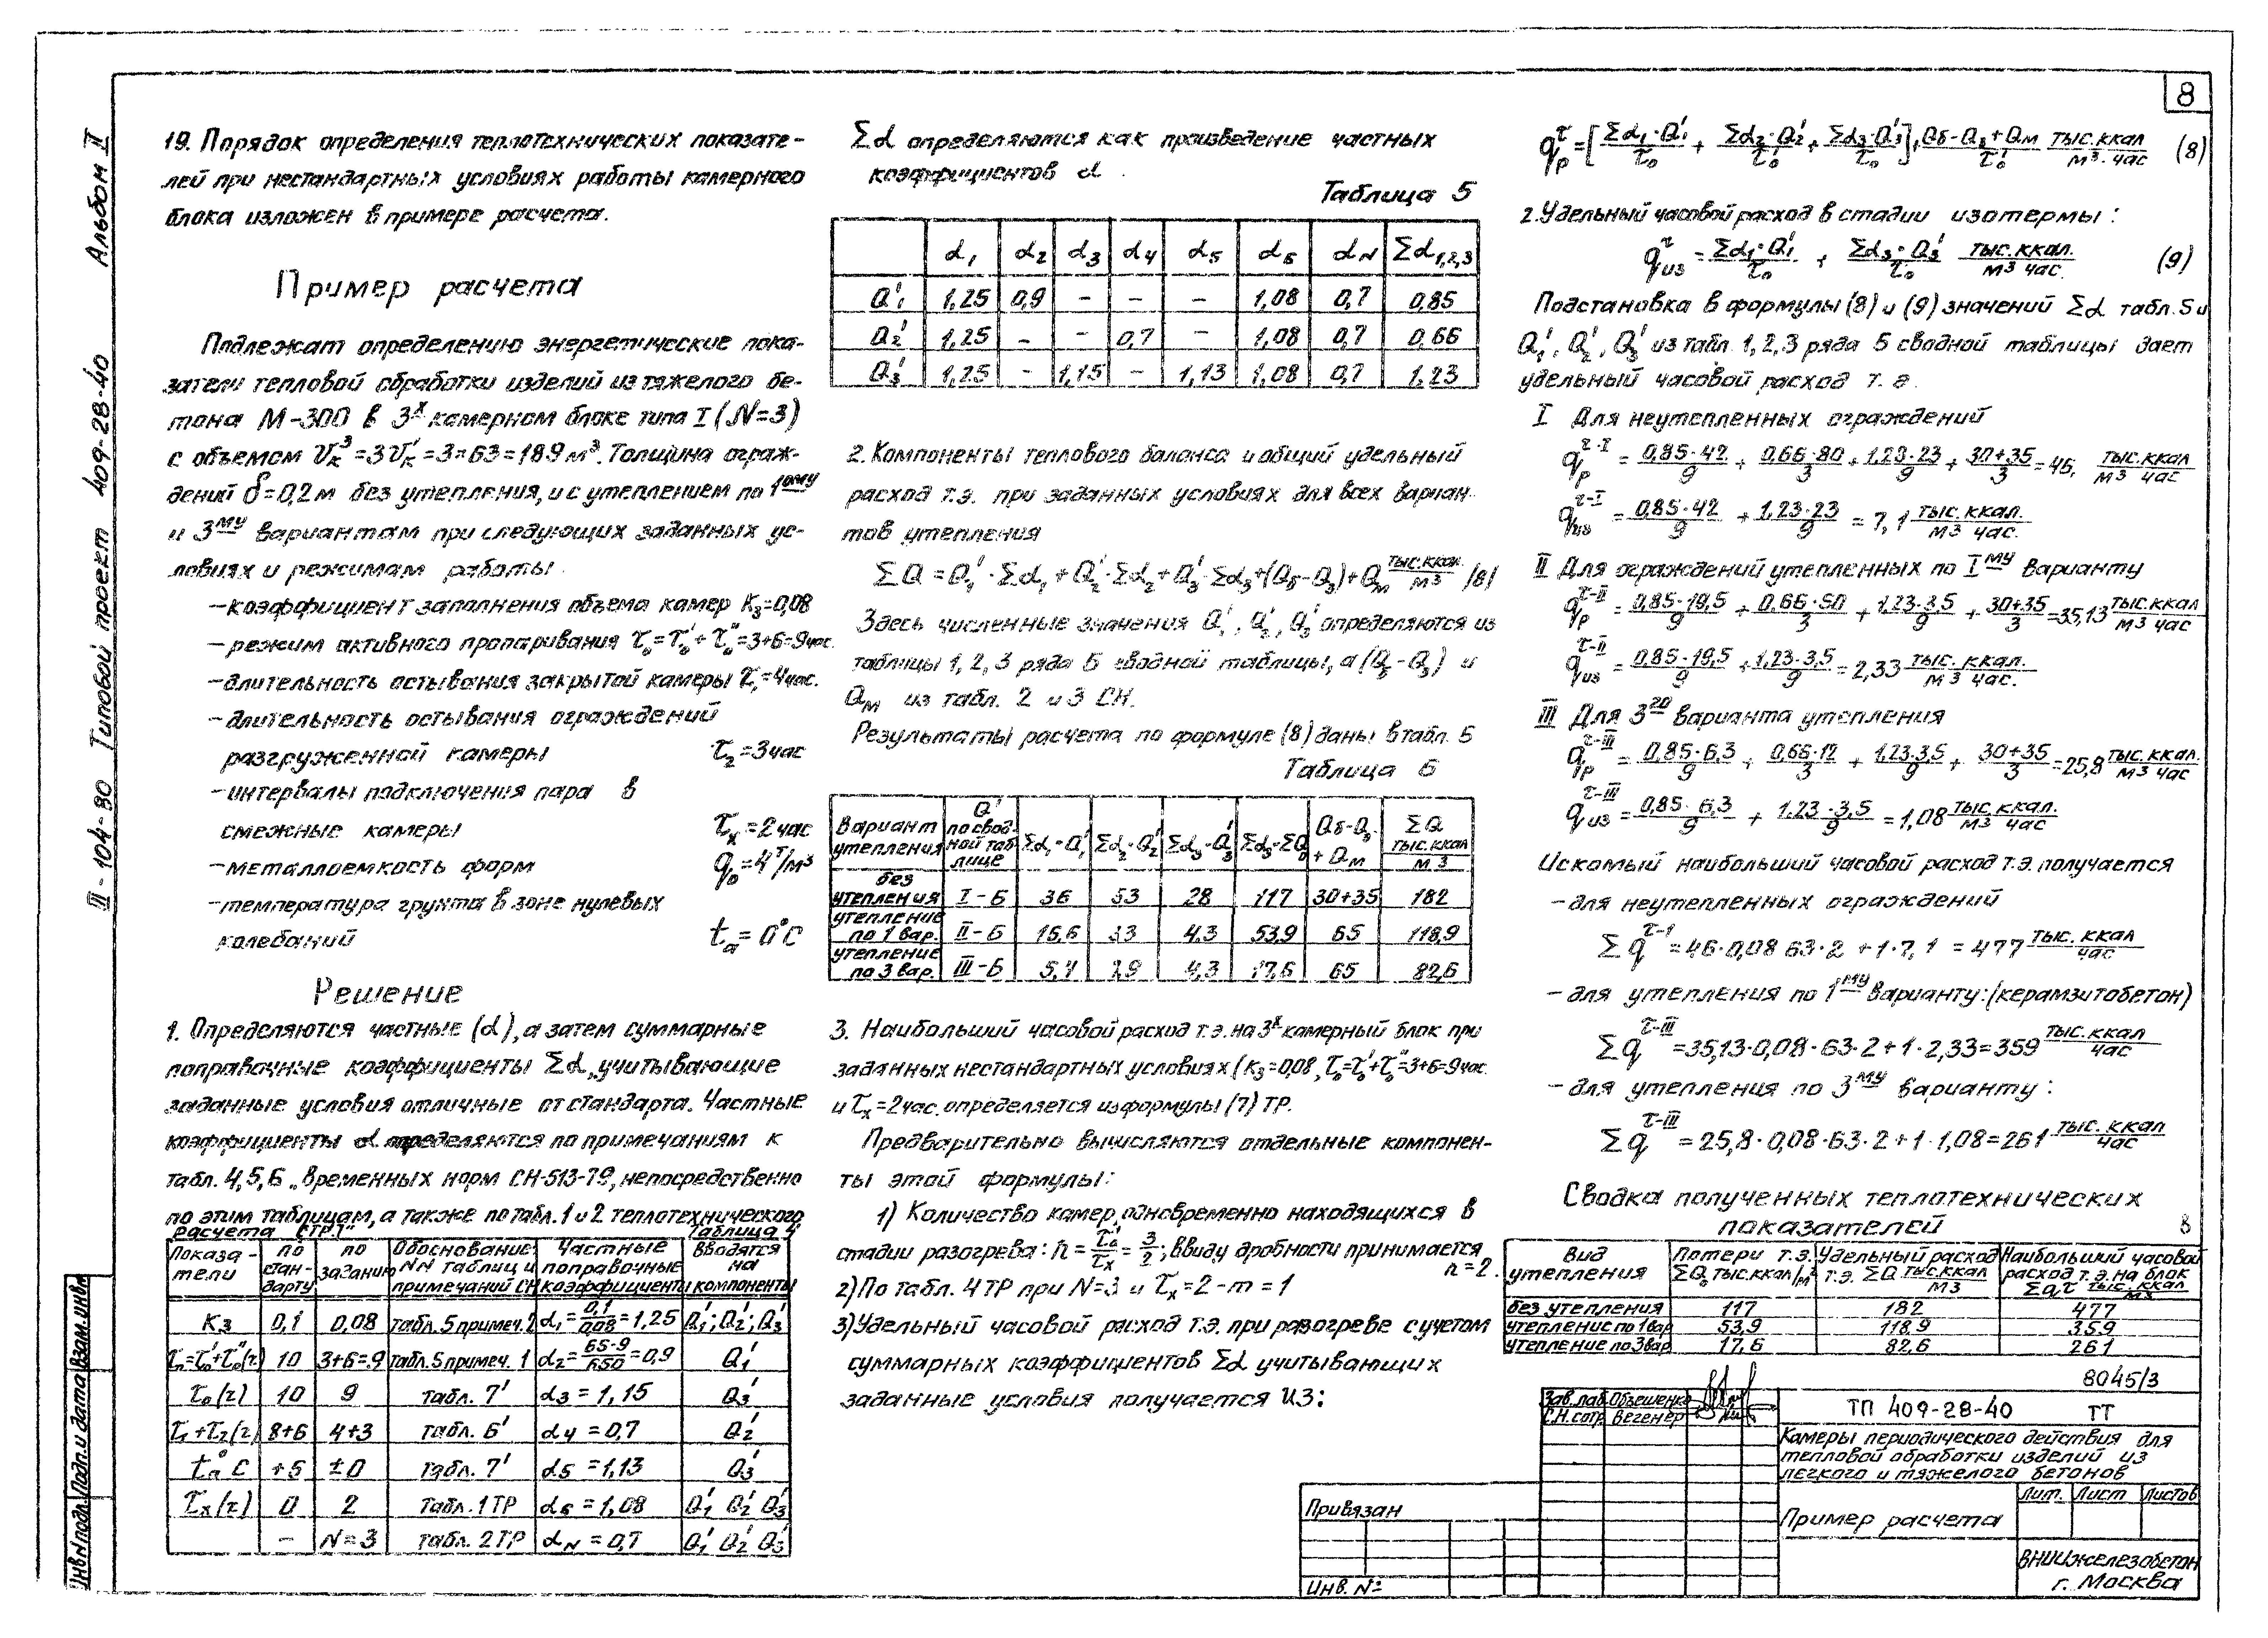 8
III-104-80 Типовой проект 409-28-40 Альбом II
19. Порядок определения теплотехнических показате-
лей при нестандартных условиях работы камерного
блока изложен в примере расчета.
Пример расчета
Подлежат определению энергетические пока-
затели тепловой обработки изделий из тяжелого бе-
тона М-300 в 3х камерном блоке типа I (N=3)
с объемом Vк³=3Vк'=3×63=189 м³. Толщина ограж-
дений δ=0,2м без утепления, и с утеплением по 1ому
и 3му вариантам при следующих заданных ус-
ловиях и режимам работы.
-коэффициент заполнения объема камер Kз=0,08
-режим активного пропаривания τ₀=τ₀'+τ₀''=3+6=9час.
-длительность остывания закрытой камеры τ₁=4час.
-длительность остывания ограждений
разгруженной камеры τ₂=3час
-интервалы подключения пара в
смежные камеры τх=2час
-металлоемкость форм q₀=4 т/м³
-температура грунта в зоне нулевых
колебаний ta=0°С
Решение
1. Определяются частные (α), а затем суммарные
поправочные коэффициенты Σα, учитывающие
заданные условия отличные от стандарта. Частные
коэффициенты α определяются по примечаниям к
табл. 4,5,6 „Временных норм СН-513-79, непосредственно
по этим таблицам, а также по табл. 1 и 2 теплотехнического
расчета стр.1" Таблица 4
Показа-тели | по стан-дарту | по заданию | Обоснование NN таблиц и примечаний СН | Частные поправочные коэффициенты | Вводятся на компоненты
Kз | 0,1 | 0,08 | табл. 5 примеч. 2 | α₁=0,1/0,08=1,25 | Q₁'; Q₂'; Q₃'
τ₀=τ₀'+τ₀''(г) | 10 | 3+6=9 | табл. 5 примеч. 1 | α₂=65·9/650=0,9 | Q₁'
τ₀(г) | 10 | 9 | табл. 7' | α₃=1,15 | Q₃'
τ₁+τ₂(г) | 8+6 | 4+3 | табл. 6' | α₄=0,7 | Q₂'
ta°С | +5 | ±0 | табл. 7' | α₅=1,13 | Q₃'
τх(г) | 0 | 2 | табл. 1 ТР | α₆=1,08 | Q₁' Q₂' Q₃'
- | N=3 | табл. 2 ТР | αN=0,7 | Q₁' Q₂' Q₃'
Σα определяются как произведение частных
коэффициентов α.
Таблица 5
α₁ | α₂ | α₃ | α₄ | α₅ | α₆ | αN | Σα₁,₂,₃
Q₁' | 1,25 | 0,9 | - | - | - | 1,08 | 0,7 | 0,85
Q₂' | 1,25 | - | - | 0,7 | - | 1,08 | 0,7 | 0,66
Q₃' | 1,25 | - | 1,15 | - | 1,13 | 1,08 | 0,7 | 1,23
2. Компоненты теплового баланса и общий удельный
расход т.э. при заданных условиях для всех вариан-
тов утепления
ΣQ=Q₁'·Σα₁+Q₂'·Σα₂+Q₃'·Σα₃+(Qб-Qэ)+Qм тыс.ккал/м³ /8/
Здесь численные значения Q₁', Q₂', Q₃' определяются из
таблицы 1, 2, 3 ряда Б сводной таблицы, а (Qб-Qэ) и
Qм из табл. 2 и 3 СН.
Результаты расчета по формуле (8) даны в табл. 6
Таблица 6
Вариант утепления | Q' по свод-ной таб-лице | Σα₁·Q₁' | Σα₂·Q₂' | Σα₃·Q₃' | Σα₃·ΣQ₀ | Qб-Qэ+Qм | ΣQ тыс.ккал/м³
без утепления | I-Б | 36 | 53 | 28 | 117 | 30+35 | 182
утепление по 1 вар. | II-Б | 16,6 | 33 | 4,3 | 53,9 | 65 | 118,9
утепление по 3 вар. | III-Б | 5,4 | 7,9 | 4,3 | 17,6 | 65 | 82,6
3. Наибольший часовой расход т.э. на 3х камерный блок при
заданных нестандартных условиях (Kз=0,08, τ₀=τ₀'+τ₀''=3+6=9час.
и τх=2час. определяется из формулы (7) ТР.
Предварительно вычисляются отдельные компонен-
ты этой формулы:
1) Количество камер, одновременно находящихся в
стадии разогрева: n=τ₀'/τх=3/2; ввиду дробности принимается
n=2.
2) По табл. 4 ТР при N=3 и τх=2-m=1
3) Удельный часовой расход т.э. при разогреве с учетом
суммарных коэффициентов Σα учитывающих
заданные условия получается из:
qрτ=[Σα₁·Q₁'/τ₀ + Σα₂·Q₂'/τ₀' + Σα₃·Q₃'/τ₀], Qб-Qэ+Qм/τ₀' тыс.ккал/м³·час (8)
2. Удельный часовой расход в стадии изотермы:
qизτ=Σα₁·Q₁'/τ₀ + Σα₃·Q₃'/τ₀ тыс.ккал./м³ час. (9)
Подстановка в формулы (8) и (9) значений Σα табл. 5 и
Q₁', Q₂', Q₃' из табл. 1, 2, 3 ряда Б сводной таблицы дает
удельный часовой расход т.э.
I Для неутепленных ограждений
qрτ-I=0,85·42/9 + 0,66·80/3 + 1,23·23/9 + 30+35/3=46, тыс.ккал/м³ час
qизτ-I=0,85·42/9 + 1,23·23/9=7,1 тыс.ккал./м³ час.
II Для ограждений утепленных по Iму варианту
qрτ-II=0,85·19,5/9 + 0,66·50/3 + 1,23·3,5/9 + 30+35/3=35,13 тыс.ккал/м³ час
qизτ-II=0,85·19,5/9 + 1,23·3,5/9=2,33 тыс.ккал./м³ час.
III Для 3го варианта утепления
qрτ-III=0,85·6,3/9 + 0,66·12/3 + 1,23·3,5/9 + 30+35/3=25,8 тыс.ккал./м³ час
qизτ-III=0,85·6,3/9 + 1,23·3,5/9=1,08 тыс.ккал./м³ час
Искомый наибольший часовой расход т.э. получается
-для неутепленных ограждений
Σqτ-1=46·0,08 63·2 +1·7,1 = 477 тыс.ккал/час
-для утепления по 1му варианту: (керамзитобетон)
Σqτ-III=35,13·0,08·63·2+1·2,33=359 тыс.ккал/час
-для утепления по 3му варианту:
Σqτ-III=25,8·0,08·63·2+1·1,08=261 тыс.ккал/час
Сводка полученных теплотехнических
показателей
Вид утепления | Потери т.э. ΣQ₀ тыс.ккал/м³ | Удельный расход т.э. ΣQ тыс.ккал/м3 | Наибольший часовой расход т.э. на блок
без утепления | 117 | 182 | 477
утепление по 1 вар | 53,9 | 118,9 | 359
утепление по 3 вар | 17,6 | 82,6 | 261
8045/3
Зав. лаб. Объешенко
С.Н. сотр. Вегенер
ТП 409-28-40 ТТ
Камеры периодического действия для
тепловой обработки изделий из
легкого и тяжелого бетонов
Пример расчета
Лит. Лист Листов
ВНИИжелезобетон
г. Москва
Привязан
Инв. №
Инв.№подл. Подп. и дата Взам. инв.№